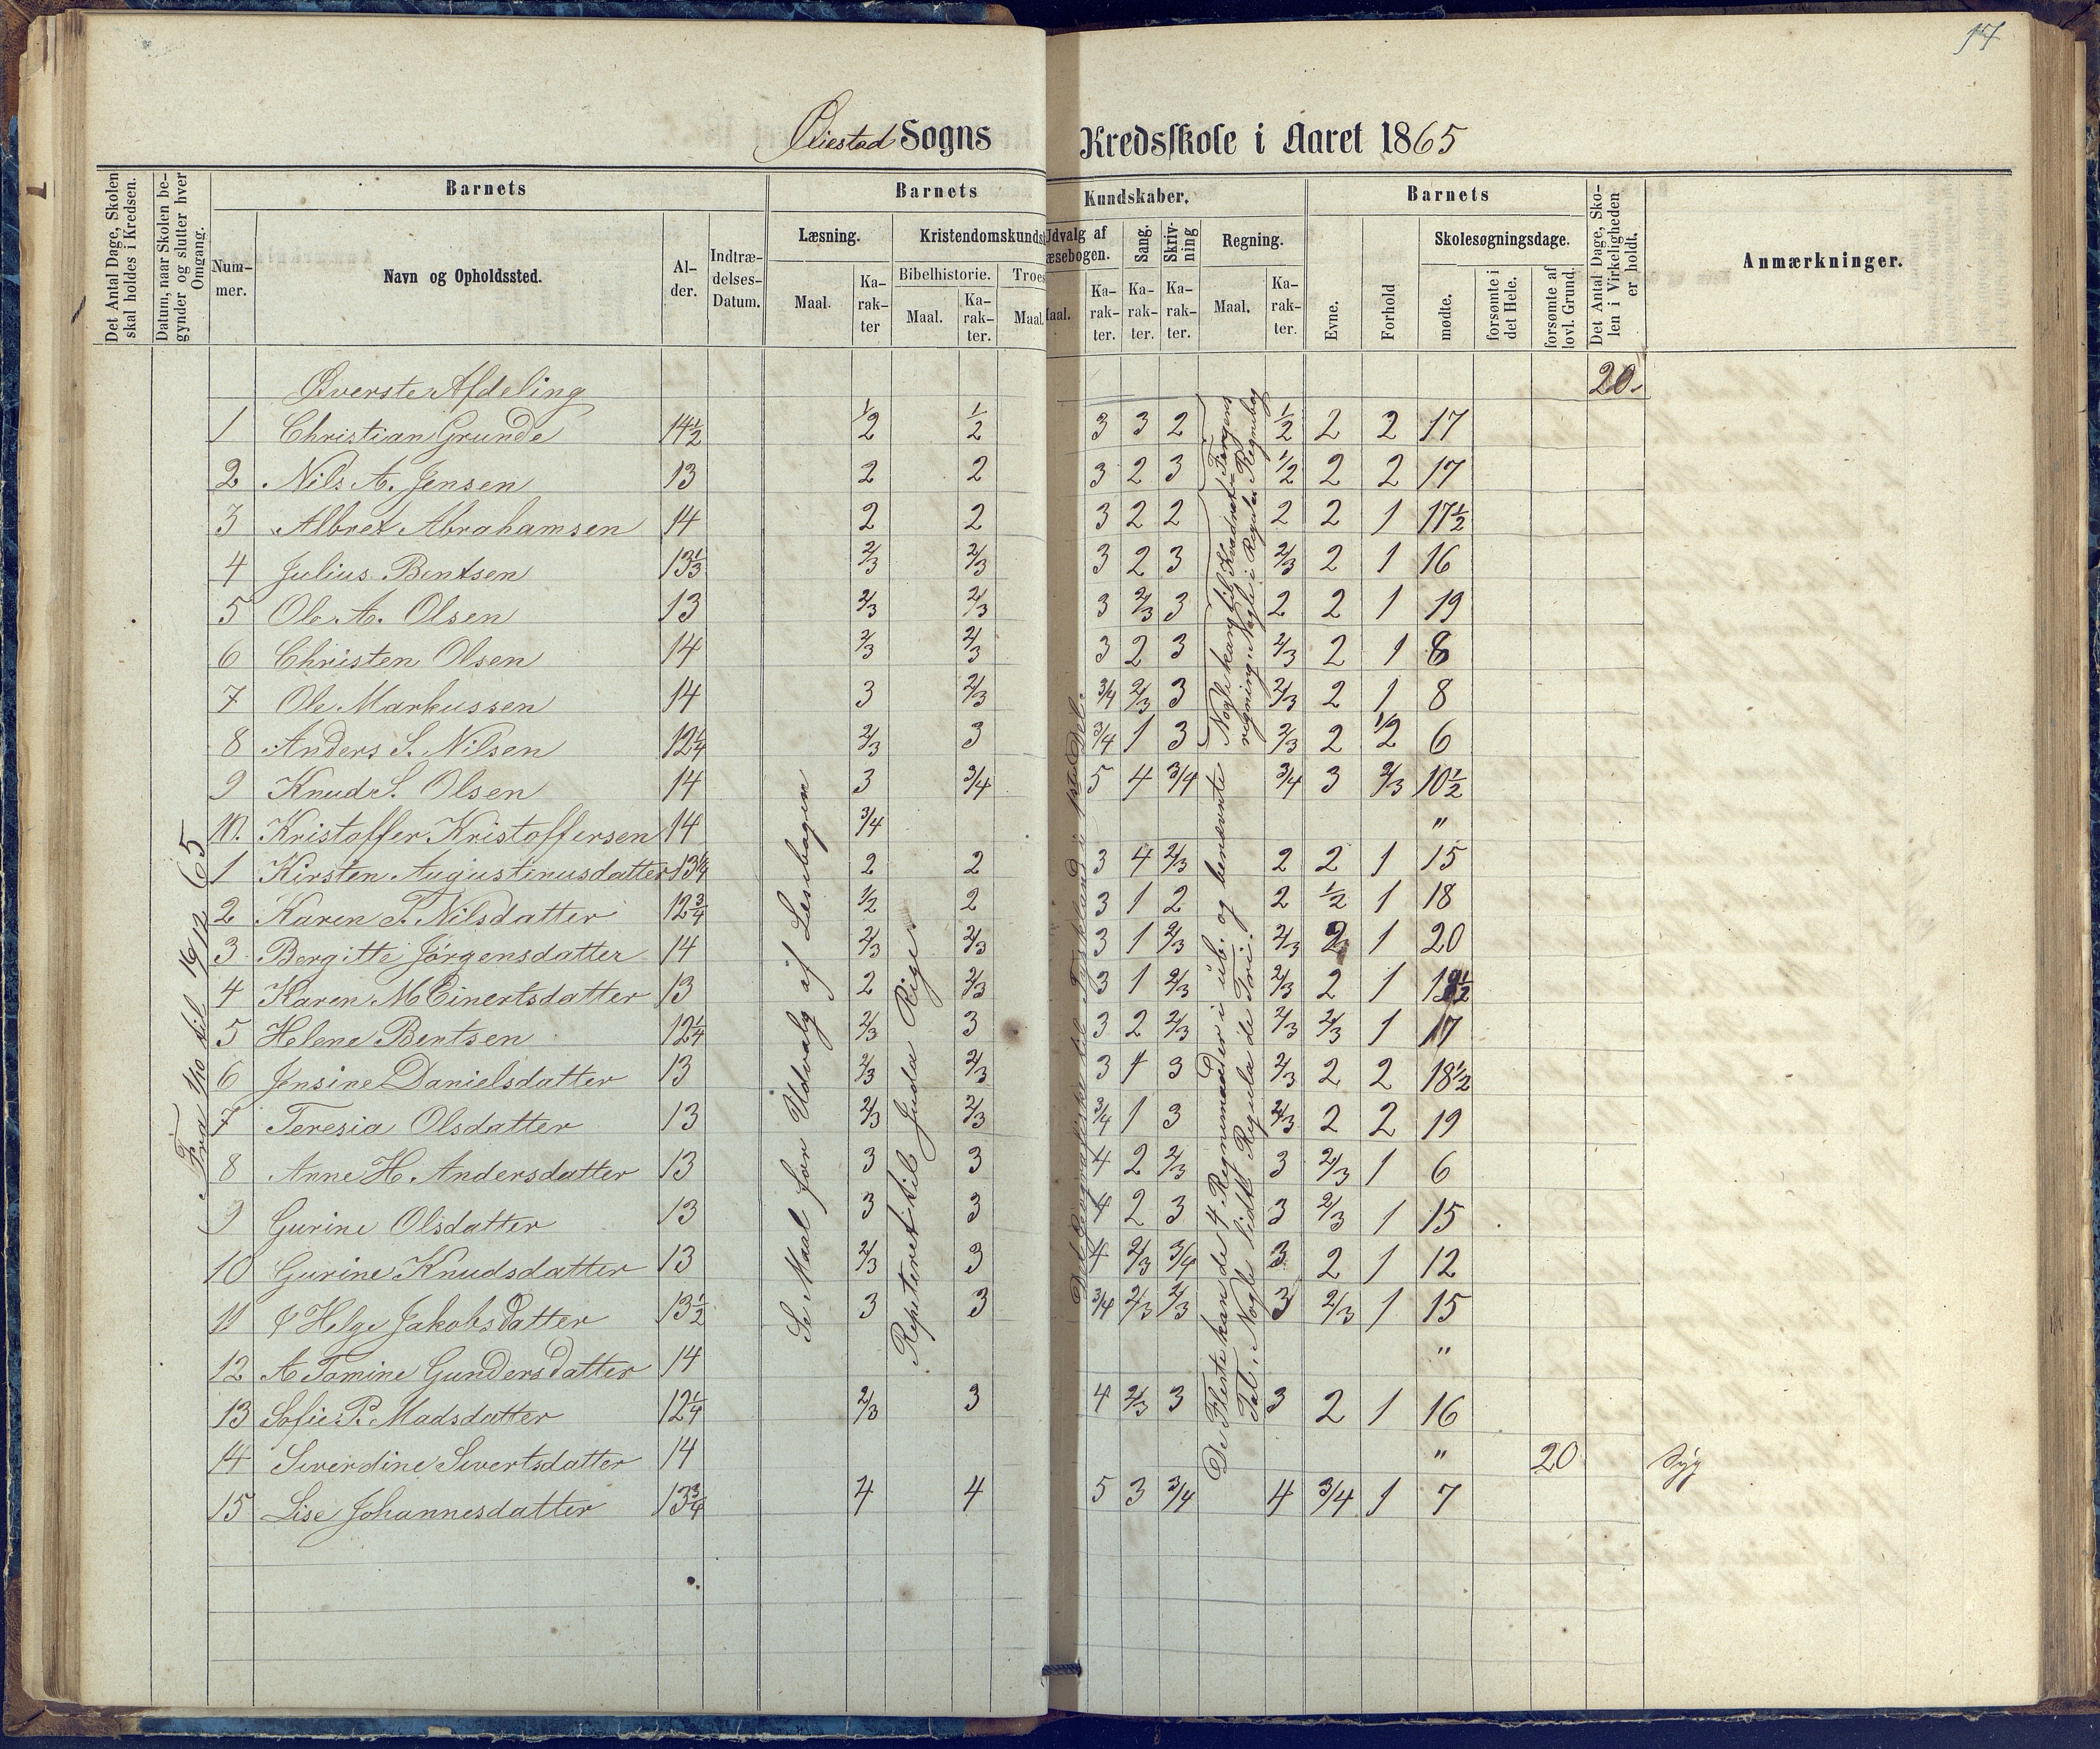 17
Øiestad Sogns Kredsskole i Aaret 1865
Det Antal Dage, Skolen skal holdes i Kredsen.
Datum, naar Skolen begynder og slutter hver Omgang.
Barnets
Barnets
Kundskaber.
Barnets
Det Antal Dage, Skolen i Virkeligheden er holdt.
Anmærkninger.
Nummer.
Navn og Opholdssted.
Alder.
Indtrædelses-Datum.
Læsning.
Kristendomskunds
Udvalg af
æsebogen.
Sang.
Skrivning
Regning.
Evne.
Forhold
Skolesøgningsdage.
Maal.
Karakter
Bibelhistorie.
Troes
Maal.
Karakter.
Maal.
aal.
Karakter.
Karakter.
Karakter.
Maal.
Karakter.
mødte.
forsømte i det Hele.
forsømte af lovl. Grund.
Øverste Afdeling 20
1 Christian Grunde 14½ 1/2 1/2 3 3 2 1/2 2 2 17
2 Nils A. Jensen 13 2 2 3 2 3 1/2 2 2 17
3 Albret Abrahamsen 14 2 2 3 2 2 2 2 1 17½
4 Julius Bentsen 13⅓ 2/3 2/3 3 2 3 2/3 2 1 16
5 Ole A. Olsen 13 2/3 2/3 3 2/3 3 2 2 1 19
6 Christen Olsen 14 2/3 2/3 3 2 3 2/3 2 1 8
7 Ole Markussen 14 3 2/3 3/4 2/3 3 2/3 2 1 8
8 Anders S. Nilsen 12¼ 2/3 3 3/4 1 3 2/3 2 1/2 6
9 Knud S. Olsen 14 3 3/4 5 4 3/4 3/4 3 2/3 10½
10. Kristoffer Kristoffersen 14 3/4 "
1 Kirsten Augustinusdatter 13¼ 2 2 3 4 2/3 2 2 1 15
2 Karen T. Nilsdatter 12¾ 1/2 2 3 1 2 2 1/2 1 18
3 Bergitte Jørgensdatter 14 2/3 2/3 3 1 2/3 2/3 2 1 20
4 Karen M Einertsdatter 13 2 2/3 3 1 2/3 2/3 2 1 19½
5 Helene Bentsen 12¼ 2/3 3 3 2 2/3 2/3 2/3 1 17
6 Jensine Danielsdatter 13 2/3 2/3 3 1 3 2/3 2 2 18½
7 Teresia Olsdatter 13 2/3 2/3 3/4 1 3 2/3 2 2 19
8 Anne H. Andersdatter 13 3 3 4 2 2/3 3 2/3 1 6
9 Gurine Olsdatter 13 3 3 4 2 3 3 2/3 1 15
10 Gurine Knudsdatter 13 2/3 3 4 2/3 3/4 3 2 1 12
11 Helge Jakobsdatter 13½ 3 3 3/4 2/3 2/3 3 2/3 1 15
12 A Tomine Gundersdatter 14 "
13 Sofie P. Madsdatter 12¼ 2/3 3 4 2/3 3 3 2 1 16
14 Severdine Severtsdatter 14 " 20 Syg
15 Lise Johannesdatter 13¾ 4 4 5 3 3/4 4 3/4 1 7
Fra 1/10 til 19/12 65
Se Maal for Udvalg af Læsebogen
Repeteret til Juda Rige
Det Geografiske til Tyskland i 1ste Del.
Nogle kan til
regning. Nogle i Regula Regnebog
De Fleste kan de 4 Regnemaader i ub. og benævnte
Tal. Nogle lidt Regula de Tri.